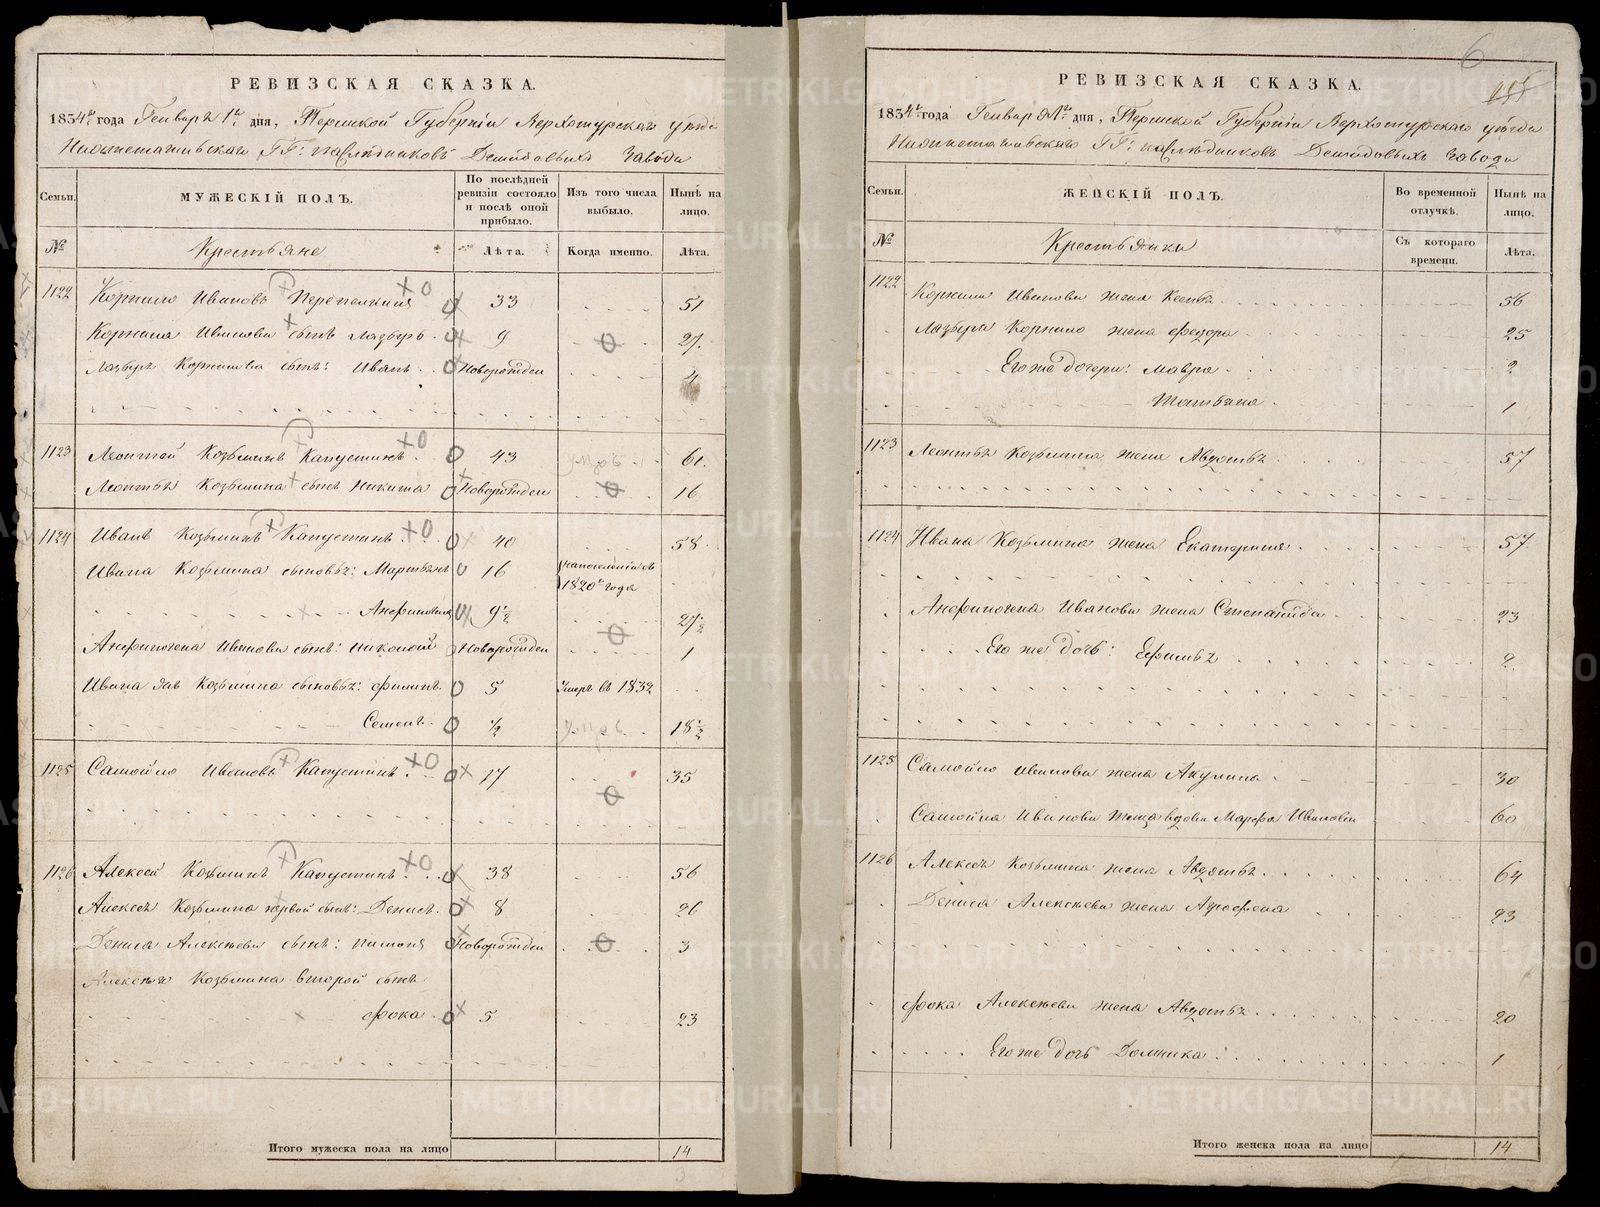 РЕВИЗСКАЯ СКАЗКА.
1834го года Генваря 1го дня, Пермской Губерніи Верхотурскаго уѣзда
Нижнетагильскаго ГГ: наслѣдниковъ Демидовыхъ завода
Семьи. МУЖЕСКІЙ ПОЛЪ. По послѣдней ревизіи состояло и послѣ оной прибыло. Изъ того числа выбыло. Нынѣ на лицо.
№ Крестьяне Лѣта. Когда именно. Лѣта.
1122 Корнило Ивановъ 33 51
Корнила Иванова сынъ Лазарь 9 27
Лазаря Корнилова сынъ: Иванъ Новорожден 4
1123 Леонтей Козьминъ Капустинъ 43 умре 61
Леонтья Козьмина сынъ Никита Новорожден 16
1124 Иванъ Козьминъ Капустинъ 40 58
Ивана Козьмина сыновья: Мартынъ 16 на поселеніи съ 1820го года
Анфиногенъ 9 1/2 27 1/2
Анфиногена Иванова сынъ: Николай Новорожден 1
Ивана Козьмина сыновья: Филипъ 5 Умеръ въ 1832
Семенъ 1/2 умре 18 1/2
1125 Самойло Ивановъ Капустинъ 17 35
1126 Алексей Козьминъ Капустинъ 38 56
Алексея Козьмина первой сынъ: Денисъ 8 26
Дениса Алексѣева сынъ: Пимонъ Новорожден 3
Алексея Козьмина второй сынъ
Фока 5 23
Итого мужеска пола на лицо 14
3
6
РЕВИЗСКАЯ СКАЗКА.
1834го года Генваря 1го дня, Пермской Губерніи Верхотурскаго уѣзда
Нижнетагильскаго ГГ: наслѣдниковъ Демидовыхъ завода
Семьи. ЖЕНСКІЙ ПОЛЪ. Во временной отлучкѣ. Нынѣ на лицо.
№ Крестьянки Съ котораго времени. Лѣта.
1122 Корнила Иванова жена 56
Лазаря Корнило жена Федора 25
Его же дочери: Мавра 2
Татьяна 1
1123 Леонтья Козьмина жена Авдотья 57
1124 Ивана Козьмина жена Екатерина 57
Анфиногена Иванова жена Степанида 23
Его же дочь: Ефимья 2
1125 Самойло Иванова жена Акулина 30
Самойла Иванова теща вдова Марфа Иванова 60
1126 Алексея Козьмина жена Авдотья 64
Дениса Алексѣева жена Аграфена 23
Фока Алексѣева жена Авдотья 20
Его же дочь Домника 1
Итого женска пола на лицо 14
METRIKI.GASO-URAL.RU